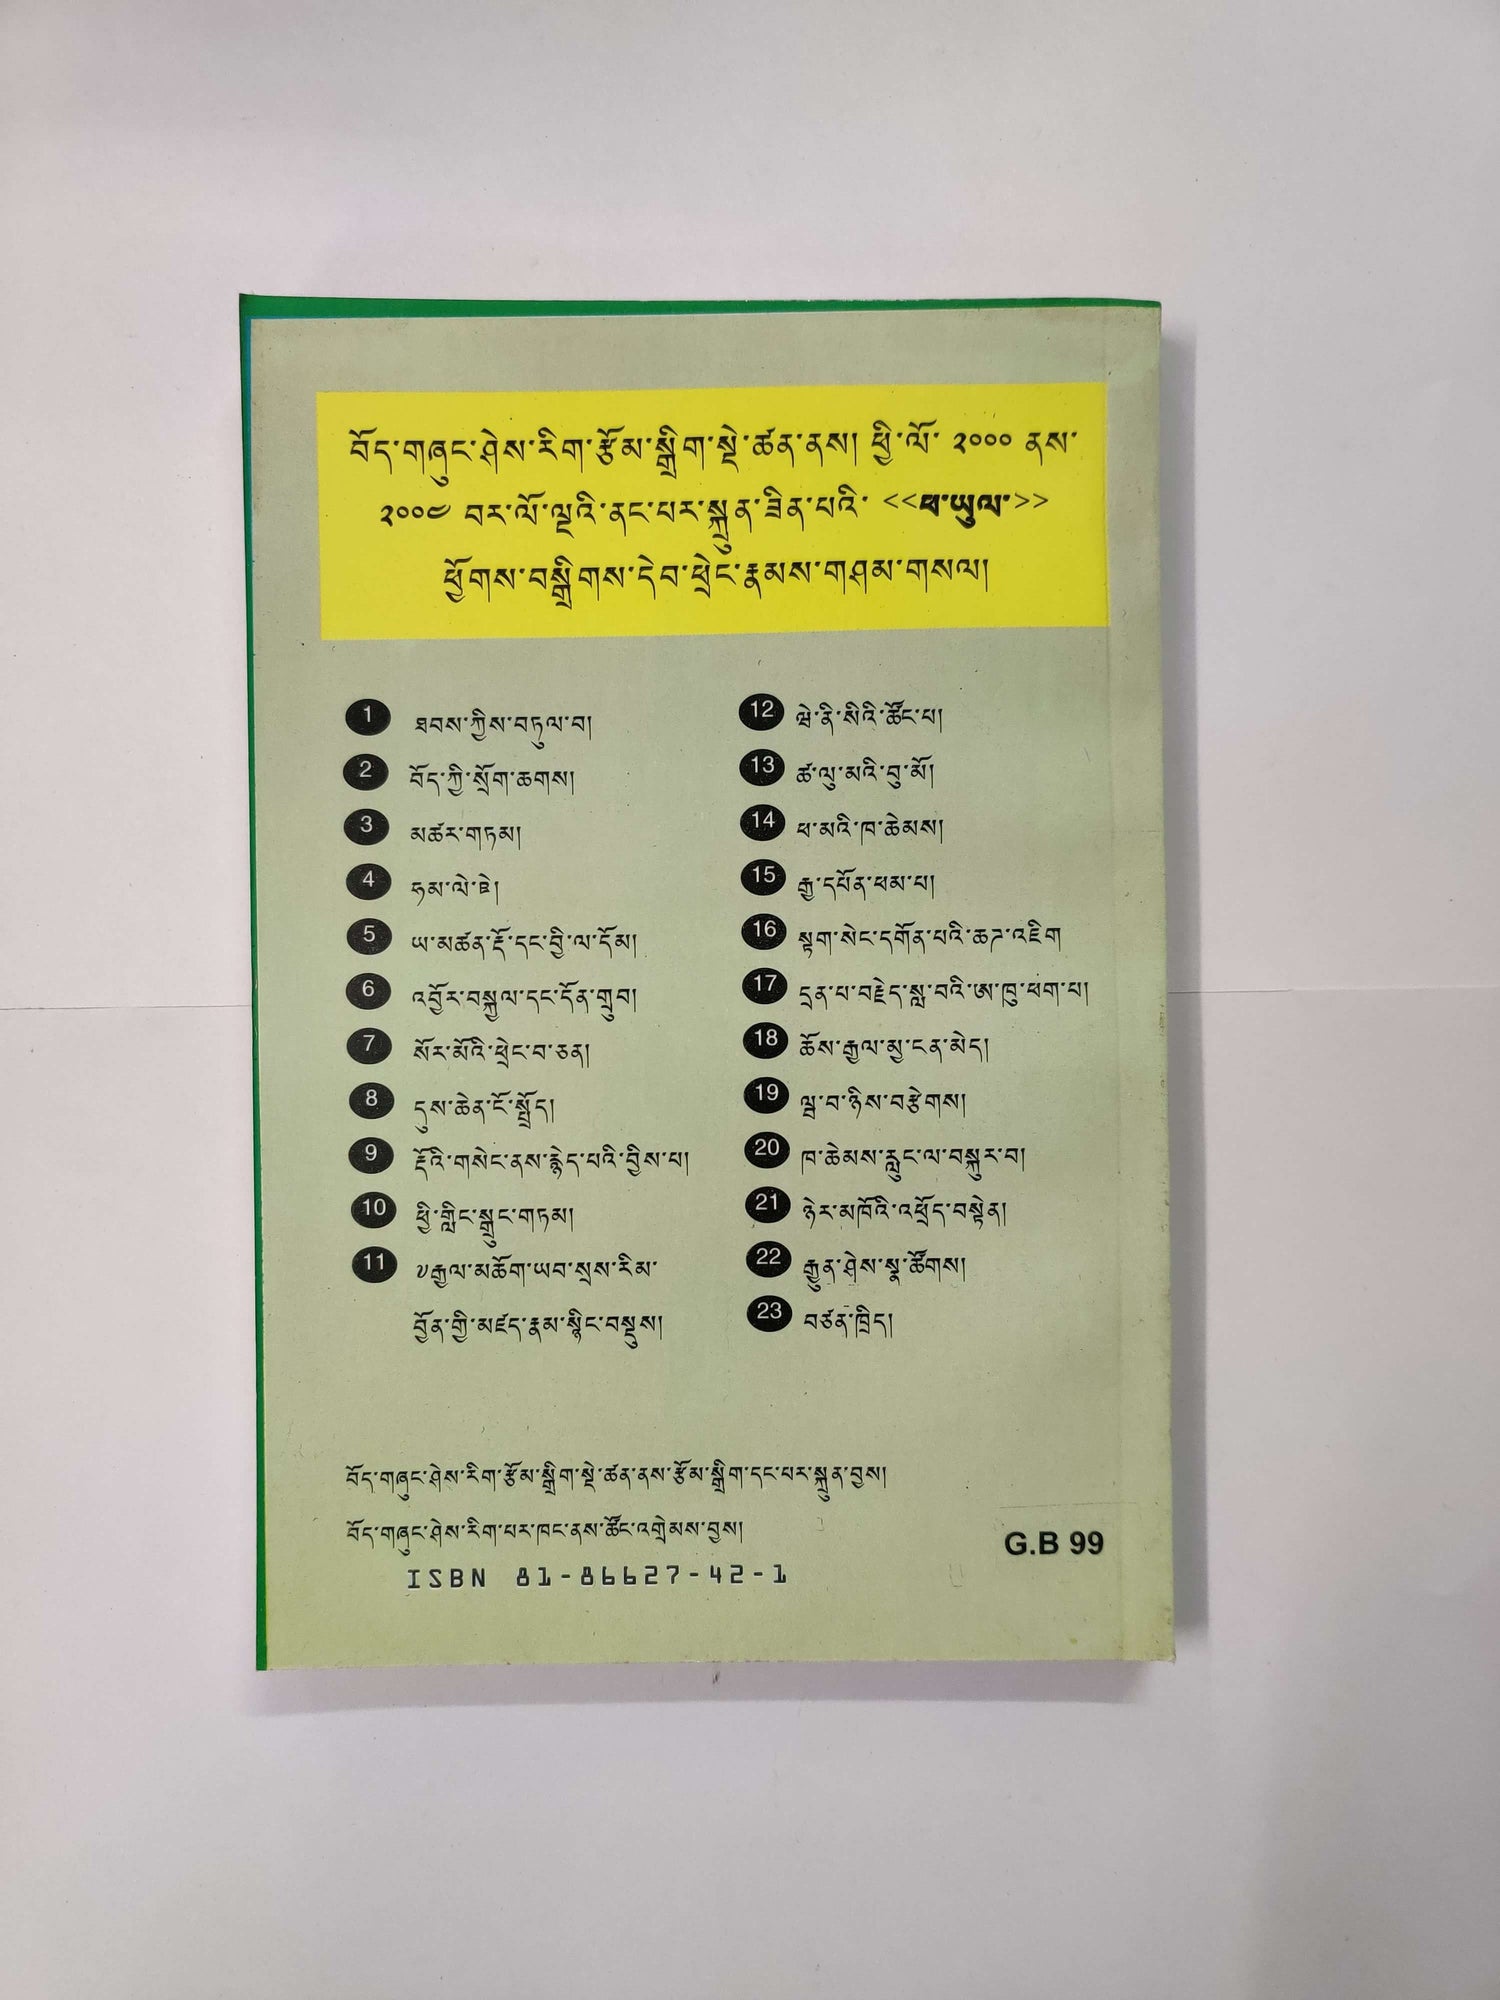 བོད་གཞུང་ཤེས་རིག་རྩོམ་སྒྲིག་སྡེ་ཚན་ནས། ཕྱི་ལོ་ ༢༠༠༠ ནས་
༢༠༠༤ བར་ལོ་ལྔའི་ནང་པར་སྐྲུན་ཟིན་པའི་ <<ཕ་ཡུལ་>>
ཕྱོགས་བསྒྲིགས་དེབ་ཕྲེང་རྣམས་གཤམ་གསལ།
1 ཐབས་ཀྱིས་བཏུལ་བ།
2 བོད་ཀྱི་སྲོག་ཆགས།
3 མཚར་གཏམ།
4 ཧམ་ལེ་ཊེ།
5 ཡ་མཚན་རྡོ་དང་བྱི་ལ་དོམ།
6 འབྱོར་བསྐྱལ་དང་དོན་གྲུབ།
7 སོར་མོའི་ཕྲེང་བ་ཅན།
8 དུས་ཆེན་ངོ་སྤྲོད།
9 རྡོའི་གསེང་ནས་རྙེད་པའི་བྱིས་པ།
10 ཕྱི་གླིང་སྒྲུང་གཏམ།
11 ༧རྒྱལ་མཆོག་ཡབ་སྲས་རིམ་
བྱོན་གྱི་མཛད་རྣམ་སྙིང་བསྡུས།
12 ཝེ་ནི་སིའི་ཚོང་པ།
13 ཚ་ལུ་མའི་བུ་མོ།
14 ཕ་མའི་ཁ་ཆེམས།
15 རྒྱ་དཔོན་ཕམ་པ།
16 སྟག་སེང་དགོན་པའི་ཆཊ་འཇིག
17 དྲན་པ་བརྗེད་སླ་བའི་ཨ་ཁུ་ཕག་པ།
18 ཆོས་རྒྱལ་མྱ་ངན་མེད།
19 ལྦ་བ་ཉིས་བརྩེགས།
20 ཁ་ཆེམས་རླུང་ལ་བསྐུར་བ།
21 ཉེར་མཁོའི་འཕྲོད་བསྟེན།
22 རྒྱུན་ཤེས་སྣ་ཚོགས།
23 བཙན་ཁྲིད།
བོད་གཞུང་ཤེས་རིག་རྩོམ་སྒྲིག་སྡེ་ཚན་ནས་རྩོམ་སྒྲིག་དང་པར་སྐྲུན་བྱས།
བོད་གཞུང་ཤེས་རིག་པར་ཁང་ནས་ཚོང་འགྲེམས་བྱས།
G.B 99
ISBN 81-86627-42-1